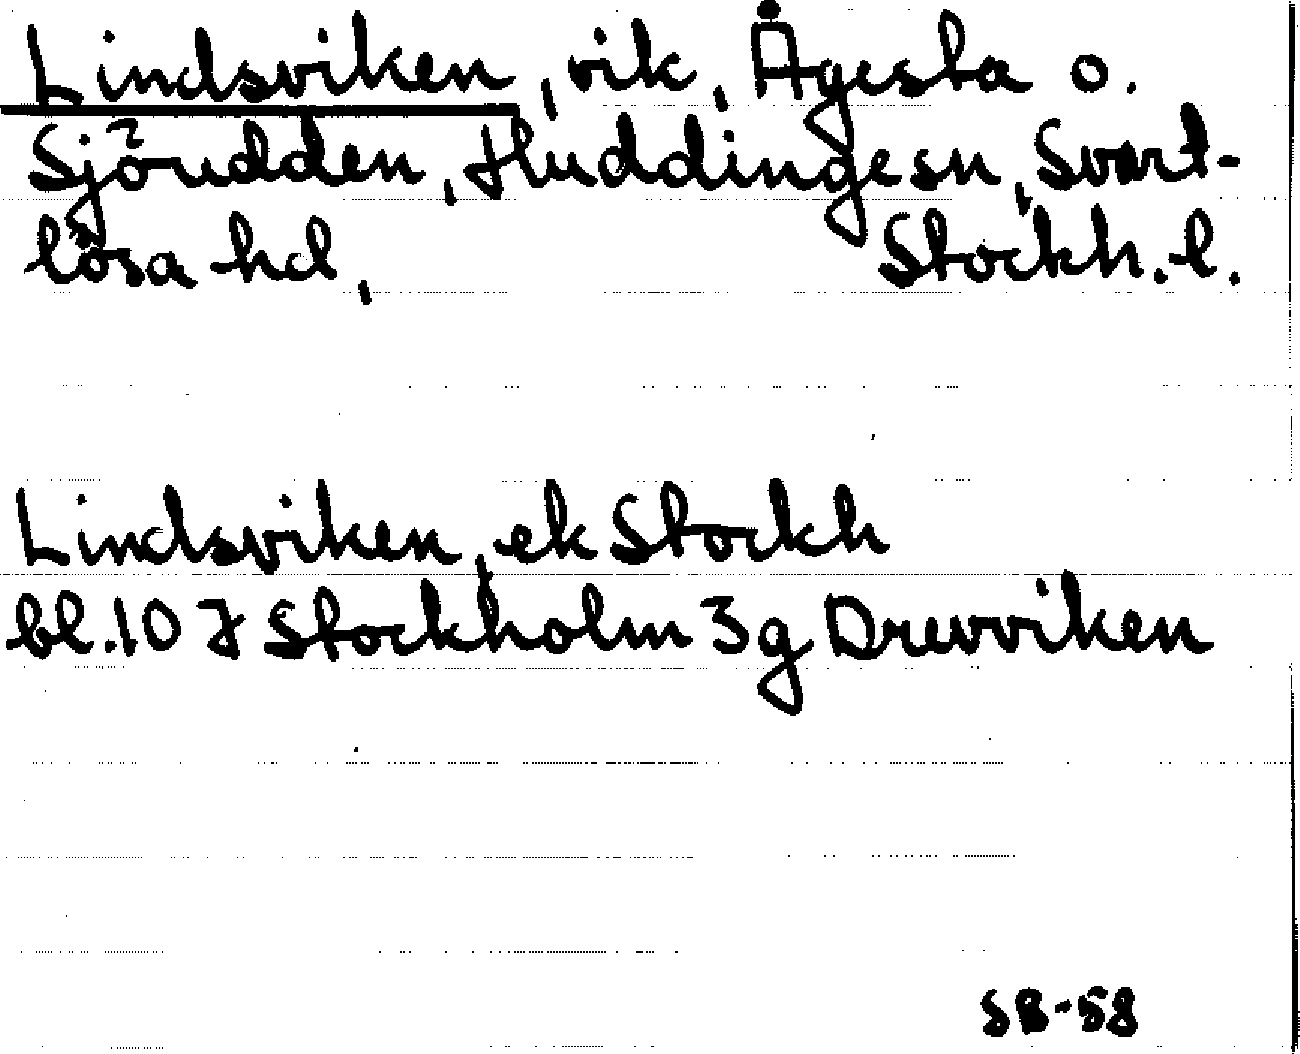 Lindsviken, vik, Ågesta o.
Sjöudden, Huddinge sn, Svart-
lösa hd, Stockh. l.
Lindsviken, ek Stockh
bl. 10 7 Stockholm 3g Drevviken
SB-58